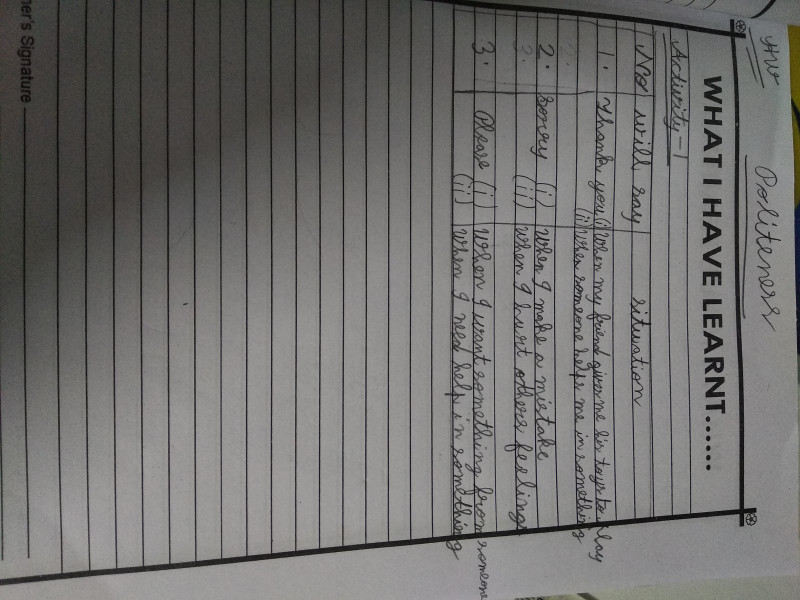 HW
Politeness
WHAT I HAVE LEARNT......
Activity-1
No will say situation
1. Thank you (i) When my friend gives me his toys to play
(ii) When someone helps me in something
2. Sorry (i) When I make a mistake
3. (ii) When I hurt others feelings
3. Please (i) When I want something from someone
(ii) When I need help in something
ner's Signature